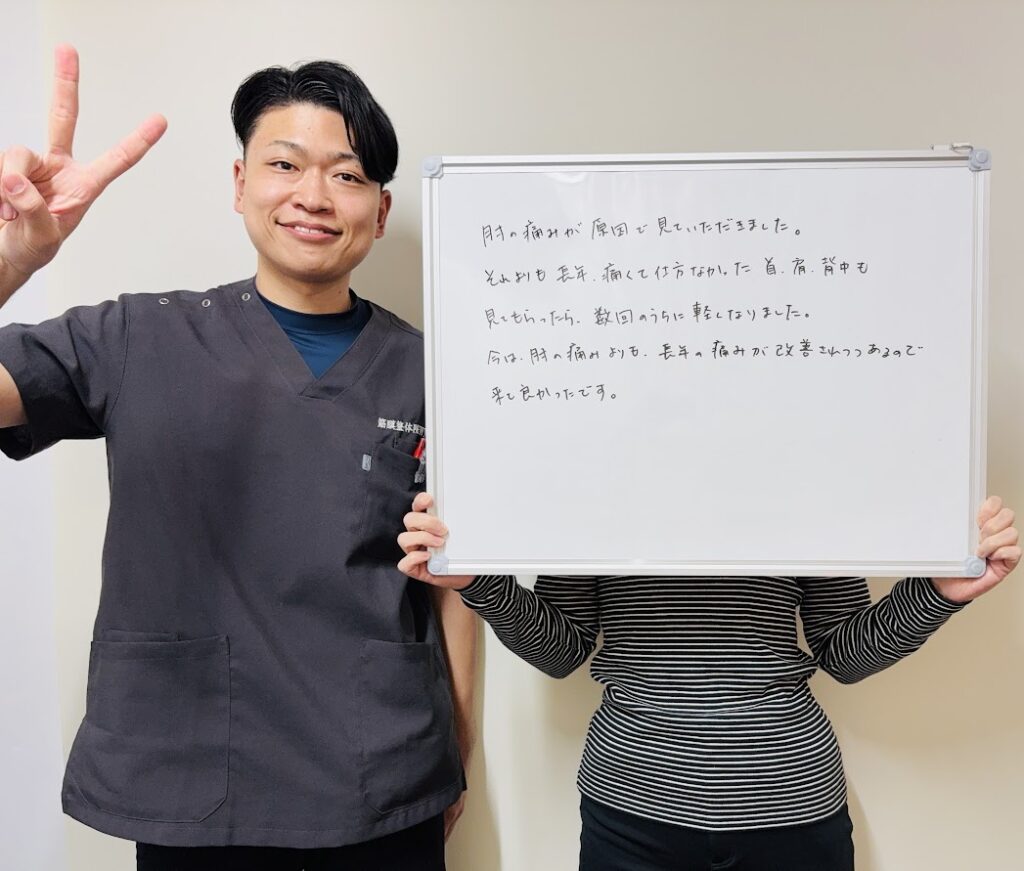 肘の痛みが原因で見ていただきました。
それよりも長年、痛くて仕方なかった首、肩、背中も
見てもらったら、数回のうちに軽くなりました。
今は、肘の痛みよりも、長年の痛みが改善されつつあるので
来て良かったです。
筋膜整体院